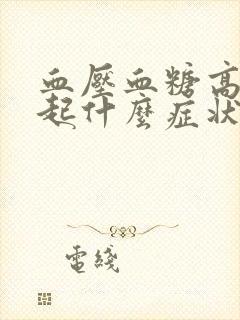 血壓血糖高
起什麼症狀
電綫